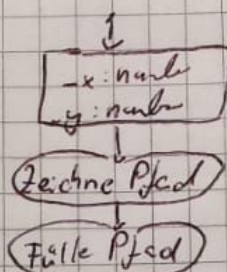 -x: number
-y: number
Zeichne Pfad
Fülle Pfad